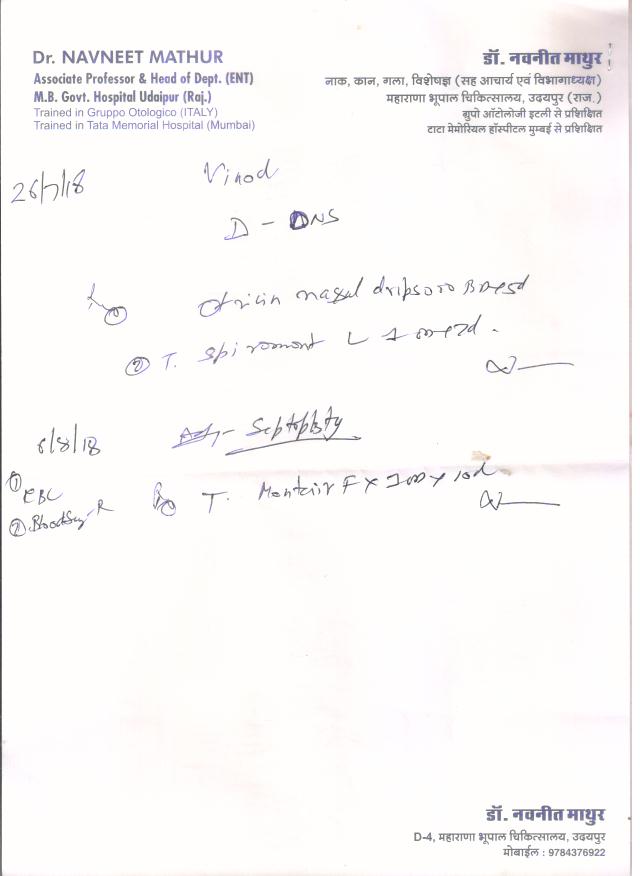 Dr. NAVNEET MATHUR
Associate Professor & Head of Dept. (ENT)
M.B. Govt. Hospital Udaipur (Raj.)
Trained in Gruppo Otologico (ITALY)
Trained in Tata Memorial Hospital (Mumbai)
डॉ. नवनीत माथुर
नाक, कान, गला, विशेषज्ञ (सह आचार्य एवं विभागाध्यक्ष)
महाराणा भूपाल चिकित्सालय, उदयपुर (राज.)
ग्रुपो ऑटोलोजी इटली से प्रशिक्षित
टाटा मेमोरियल हॉस्पीटल मुम्बई से प्रशिक्षित
26/7/18 Vinod
D - DNS
nasal drips
② T. Spiromont L
6/8/18 Septoplasty
① CBC
② Blood R
T. Montair FX x 10d
डॉ. नवनीत माथुर
D-4, महाराणा भूपाल चिकित्सालय, उदयपुर
मोबाईल : 9784376922